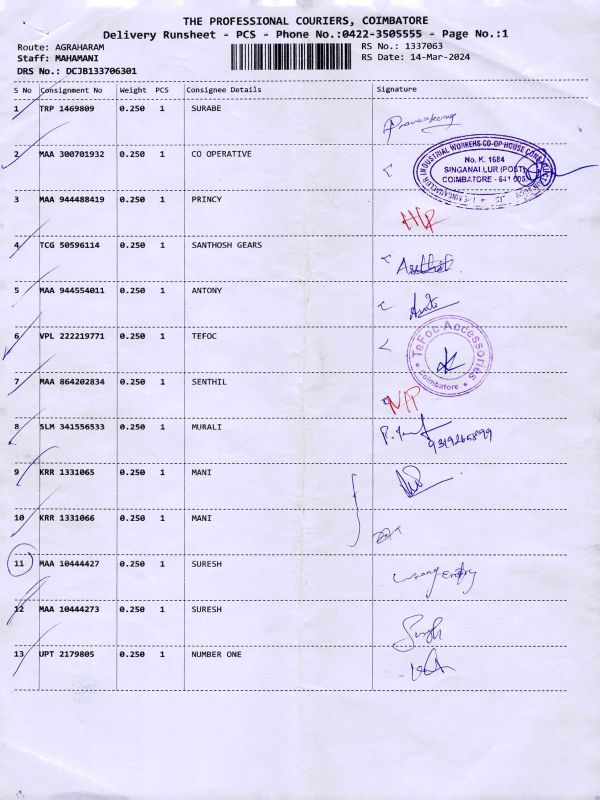 THE PROFESSIONAL COURIERS, COIMBATORE
Delivery Runsheet - PCS - Phone No.:0422-3505555 - Page No.:1
Route: AGRAHARAM RS No.: 1337063
Staff: MAHAMANI RS Date: 14-Mar-2024
DRS No.: DCJB133706301
S No Consignment No Weight PCS Consignee Details Signature
1 TRP 1469809 0.250 1 SURABE
2 MAA 300701932 0.250 1 CO OPERATIVE
INDUSTRIAL WORKERS CO-OP HOUSE
No. K. 1684
SINGANALLUR (POST)
COIMBATORE - 641 005
3 MAA 944488419 0.250 1 PRINCY
4 TCG 50596114 0.250 1 SANTHOSH GEARS
5 MAA 944554011 0.250 1 ANTONY
6 VPL 222219771 0.250 1 TEFOC
TeFoc Accessories
Coimbatore
7 MAA 864202834 0.250 1 SENTHIL
8 SLM 341556533 0.250 1 MURALI
9 KRR 1331065 0.250 1 MANI
10 KRR 1331066 0.250 1 MANI
11 MAA 10444427 0.250 1 SURESH wrong entry
12 MAA 10444273 0.250 1 SURESH
13 UPT 2179805 0.250 1 NUMBER ONE